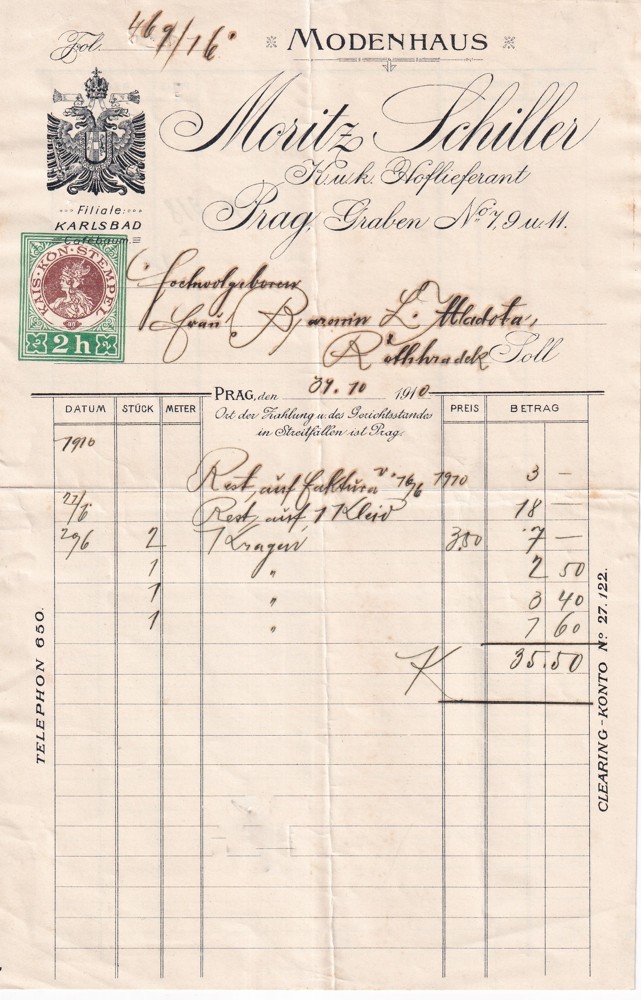 Fol. 469/16
MODENHAUS
Moritz Schiller
K.u.k. Hoflieferant
Prag, Graben No 7, 9 u. 11.
Filiale:
KARLSBAD
Cafébaum.
KAIS·KÖN·STEMPEL
2 h
Hochwolgeboren
Frau Baronin L. Mladota,
Rothhradek Soll
PRAG, den 1910
Ort der Zahlung u. des Gerichtsstandes
in Streitfällen ist Prag.
DATUM STÜCK METER PREIS BETRAG
1910
Rest auf Faktura v. 16/6 1910 3 —
Rest auf 1 Kleid 18 —
29/6 2 Kragen 3.50 7 —
1 " 2 50
1 " 3 40
1 " 1 60
K 35.50
TELEPHON 650.
CLEARING-KONTO No 27.122.